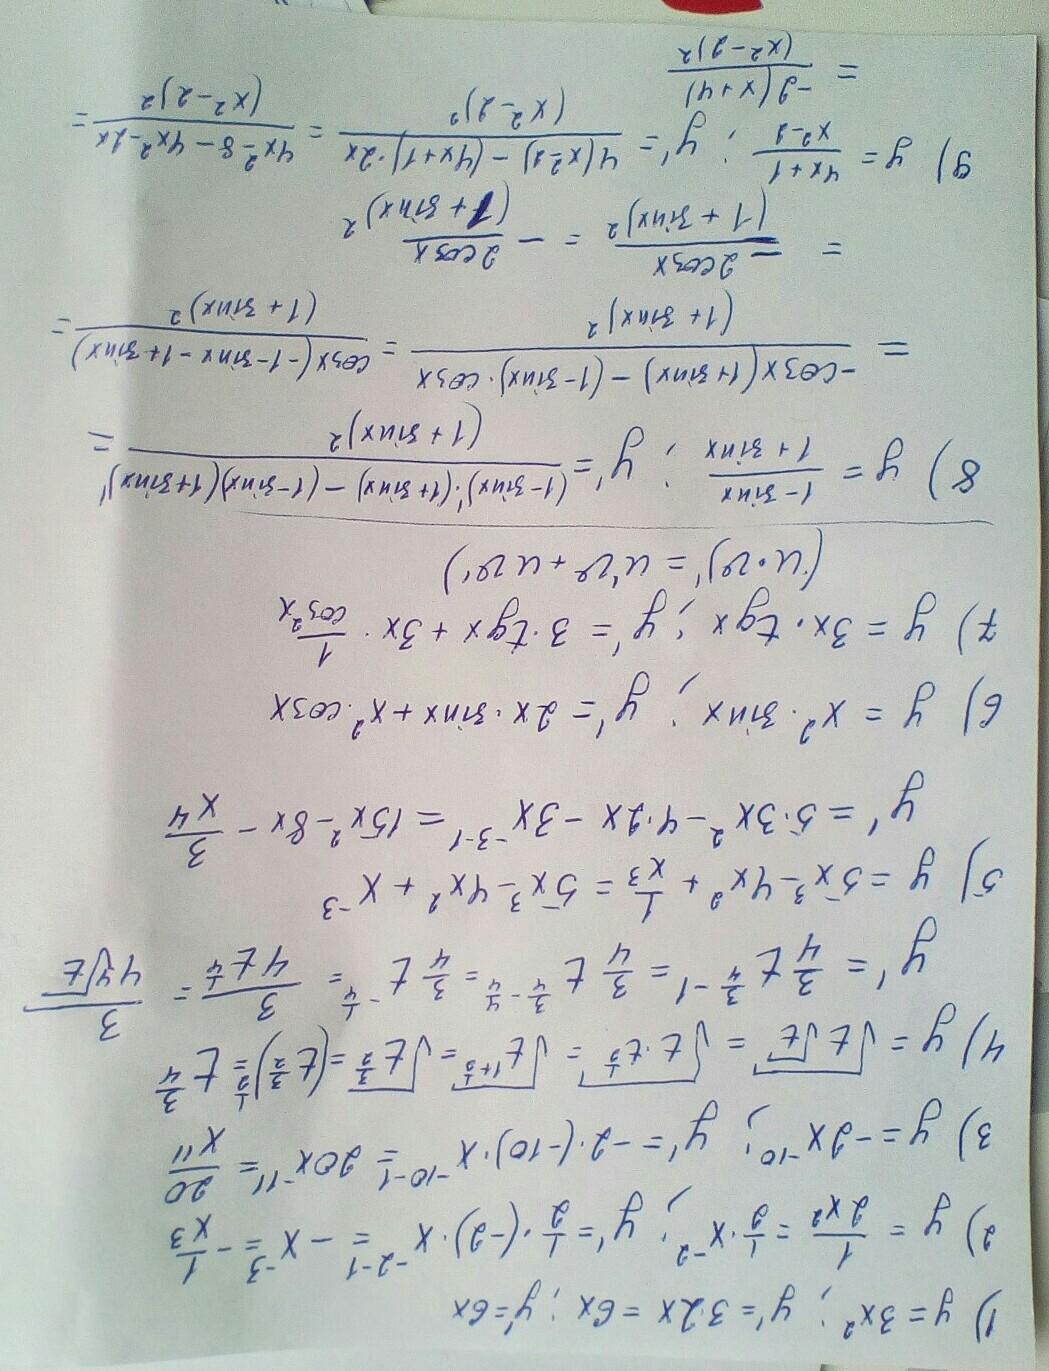 1) y = 3x²; y' = 3·2x = 6x; y' = 6x
2) y = 1/(2x²) = 1/2 · x⁻²; y' = 1/2 · (-2) · x⁻²⁻¹ = -x⁻³ = -1/x³
3) y = -2x⁻¹⁰; y' = -2·(-10)·x⁻¹⁰⁻¹ = 20x⁻¹¹ = 20/x¹¹
4) y = √(t√t) = √(t·t^(1/2)) = √(t^(1+1/2)) = √(t^(3/2)) = (t^(3/2))^(1/2) = t^(3/4)
y' = 3/4 t^(3/4 - 1) = 3/4 t^(3/4 - 4/4) = 3/4 t^(-1/4) = 3/(4t^(1/4)) = 3/(4 ⁴√t)
5) y = 5x³ - 4x² + 1/x³ = 5x³ - 4x² + x⁻³
y' = 5·3x² - 4·2x - 3x⁻³⁻¹ = 15x² - 8x - 3/x⁴
6) y = x² · sinx; y' = 2x · sinx + x² · cosx
7) y = 3x · tgx; y' = 3 · tgx + 3x · 1/cos²x
(u·v)' = u'v + uv')
8) y = (1-sinx)/(1+sinx); y' = ((1-sinx)'·(1+sinx) - (1-sinx)(1+sinx)')/(1+sinx)² =
= (-cosx(1+sinx) - (1-sinx)·cosx)/(1+sinx)² = (cosx(-1-sinx-1+sinx))/(1+sinx)² =
= -2cosx/(1+sinx)² = - 2cosx/(1+sinx)²
9) y = (4x+1)/(x²-2); y' = (4(x²-2) - (4x+1)·2x)/(x²-2)² = (4x²-8-4x²-2x)/(x²-2)² =
= -2(x+4)/(x²-2)²